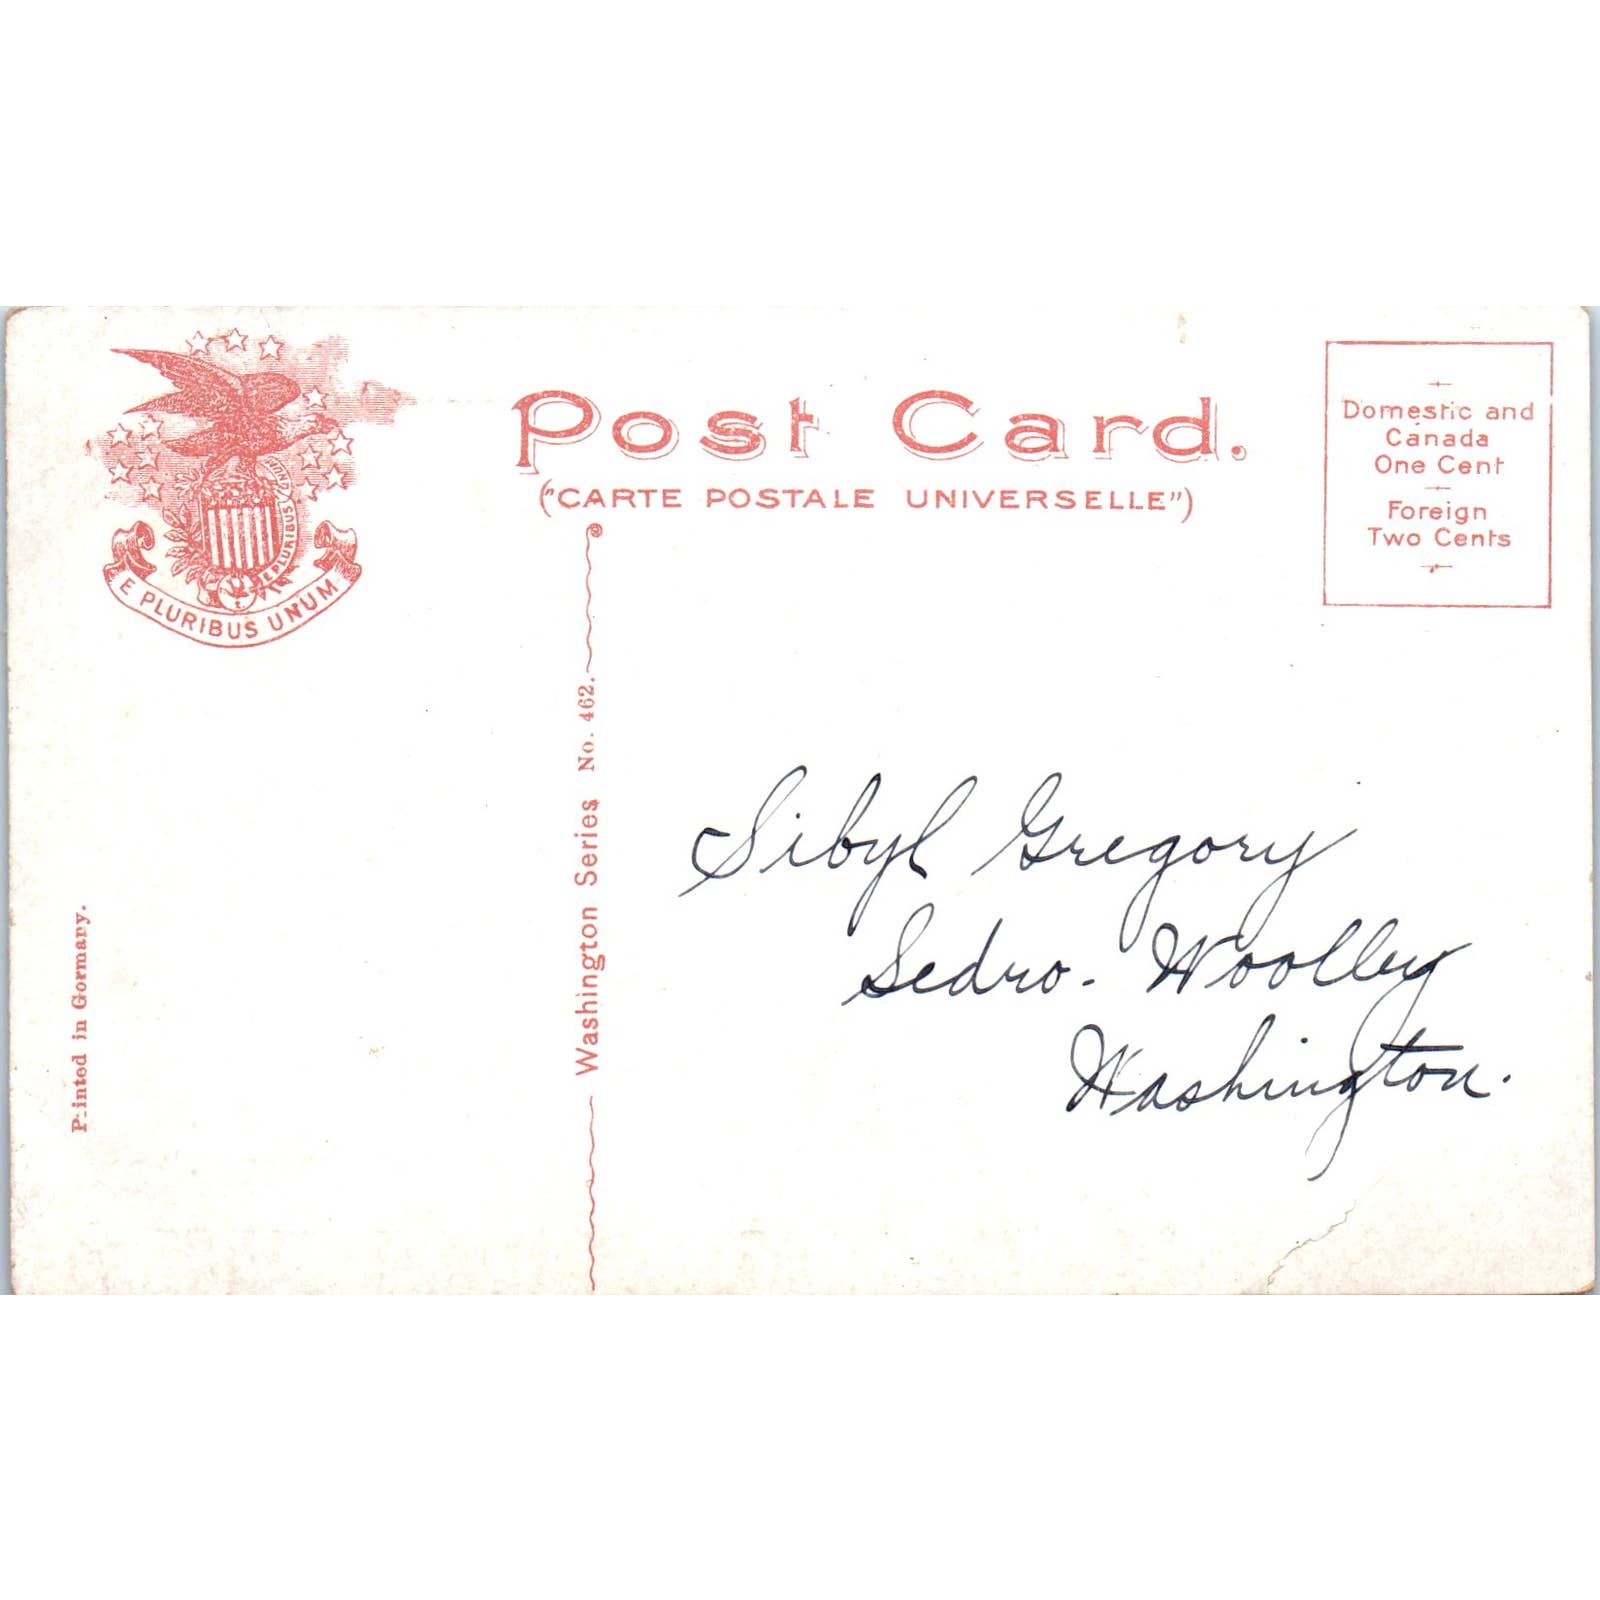 Post Card.
("CARTE POSTALE UNIVERSELLE")
Domestic and
Canada
One Cent
Foreign
Two Cents
E PLURIBUS UNUM
E PLURIBUS UNUM
Washington Series No. 462.
Printed in Germany.
Sibyl Gregory
Sedro-Woolley
Washington.